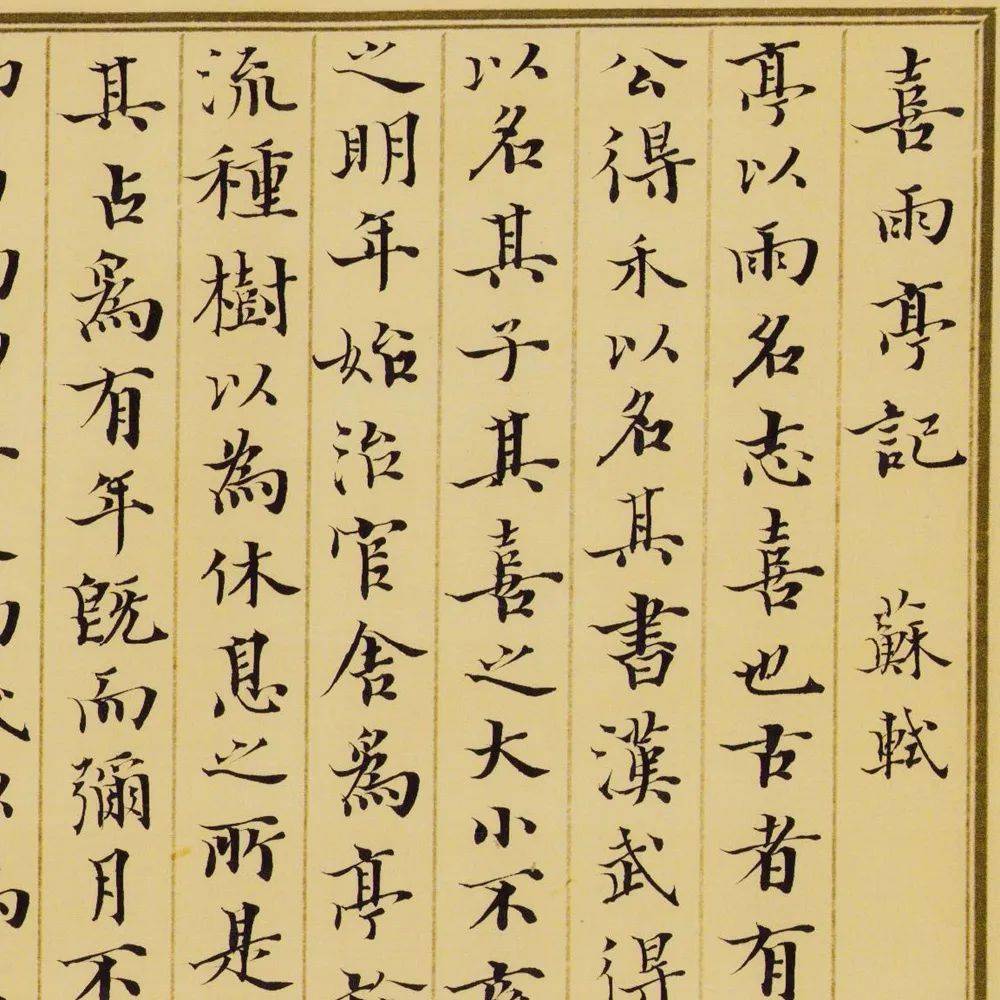 喜雨亭記 蘇軾
亭以雨名志喜也古者有
公得禾以名其書漢武得
以名其子其喜之大小不
之明年始治官舍爲亭
流種樹以為休息之所是
其占爲有年既而彌月不